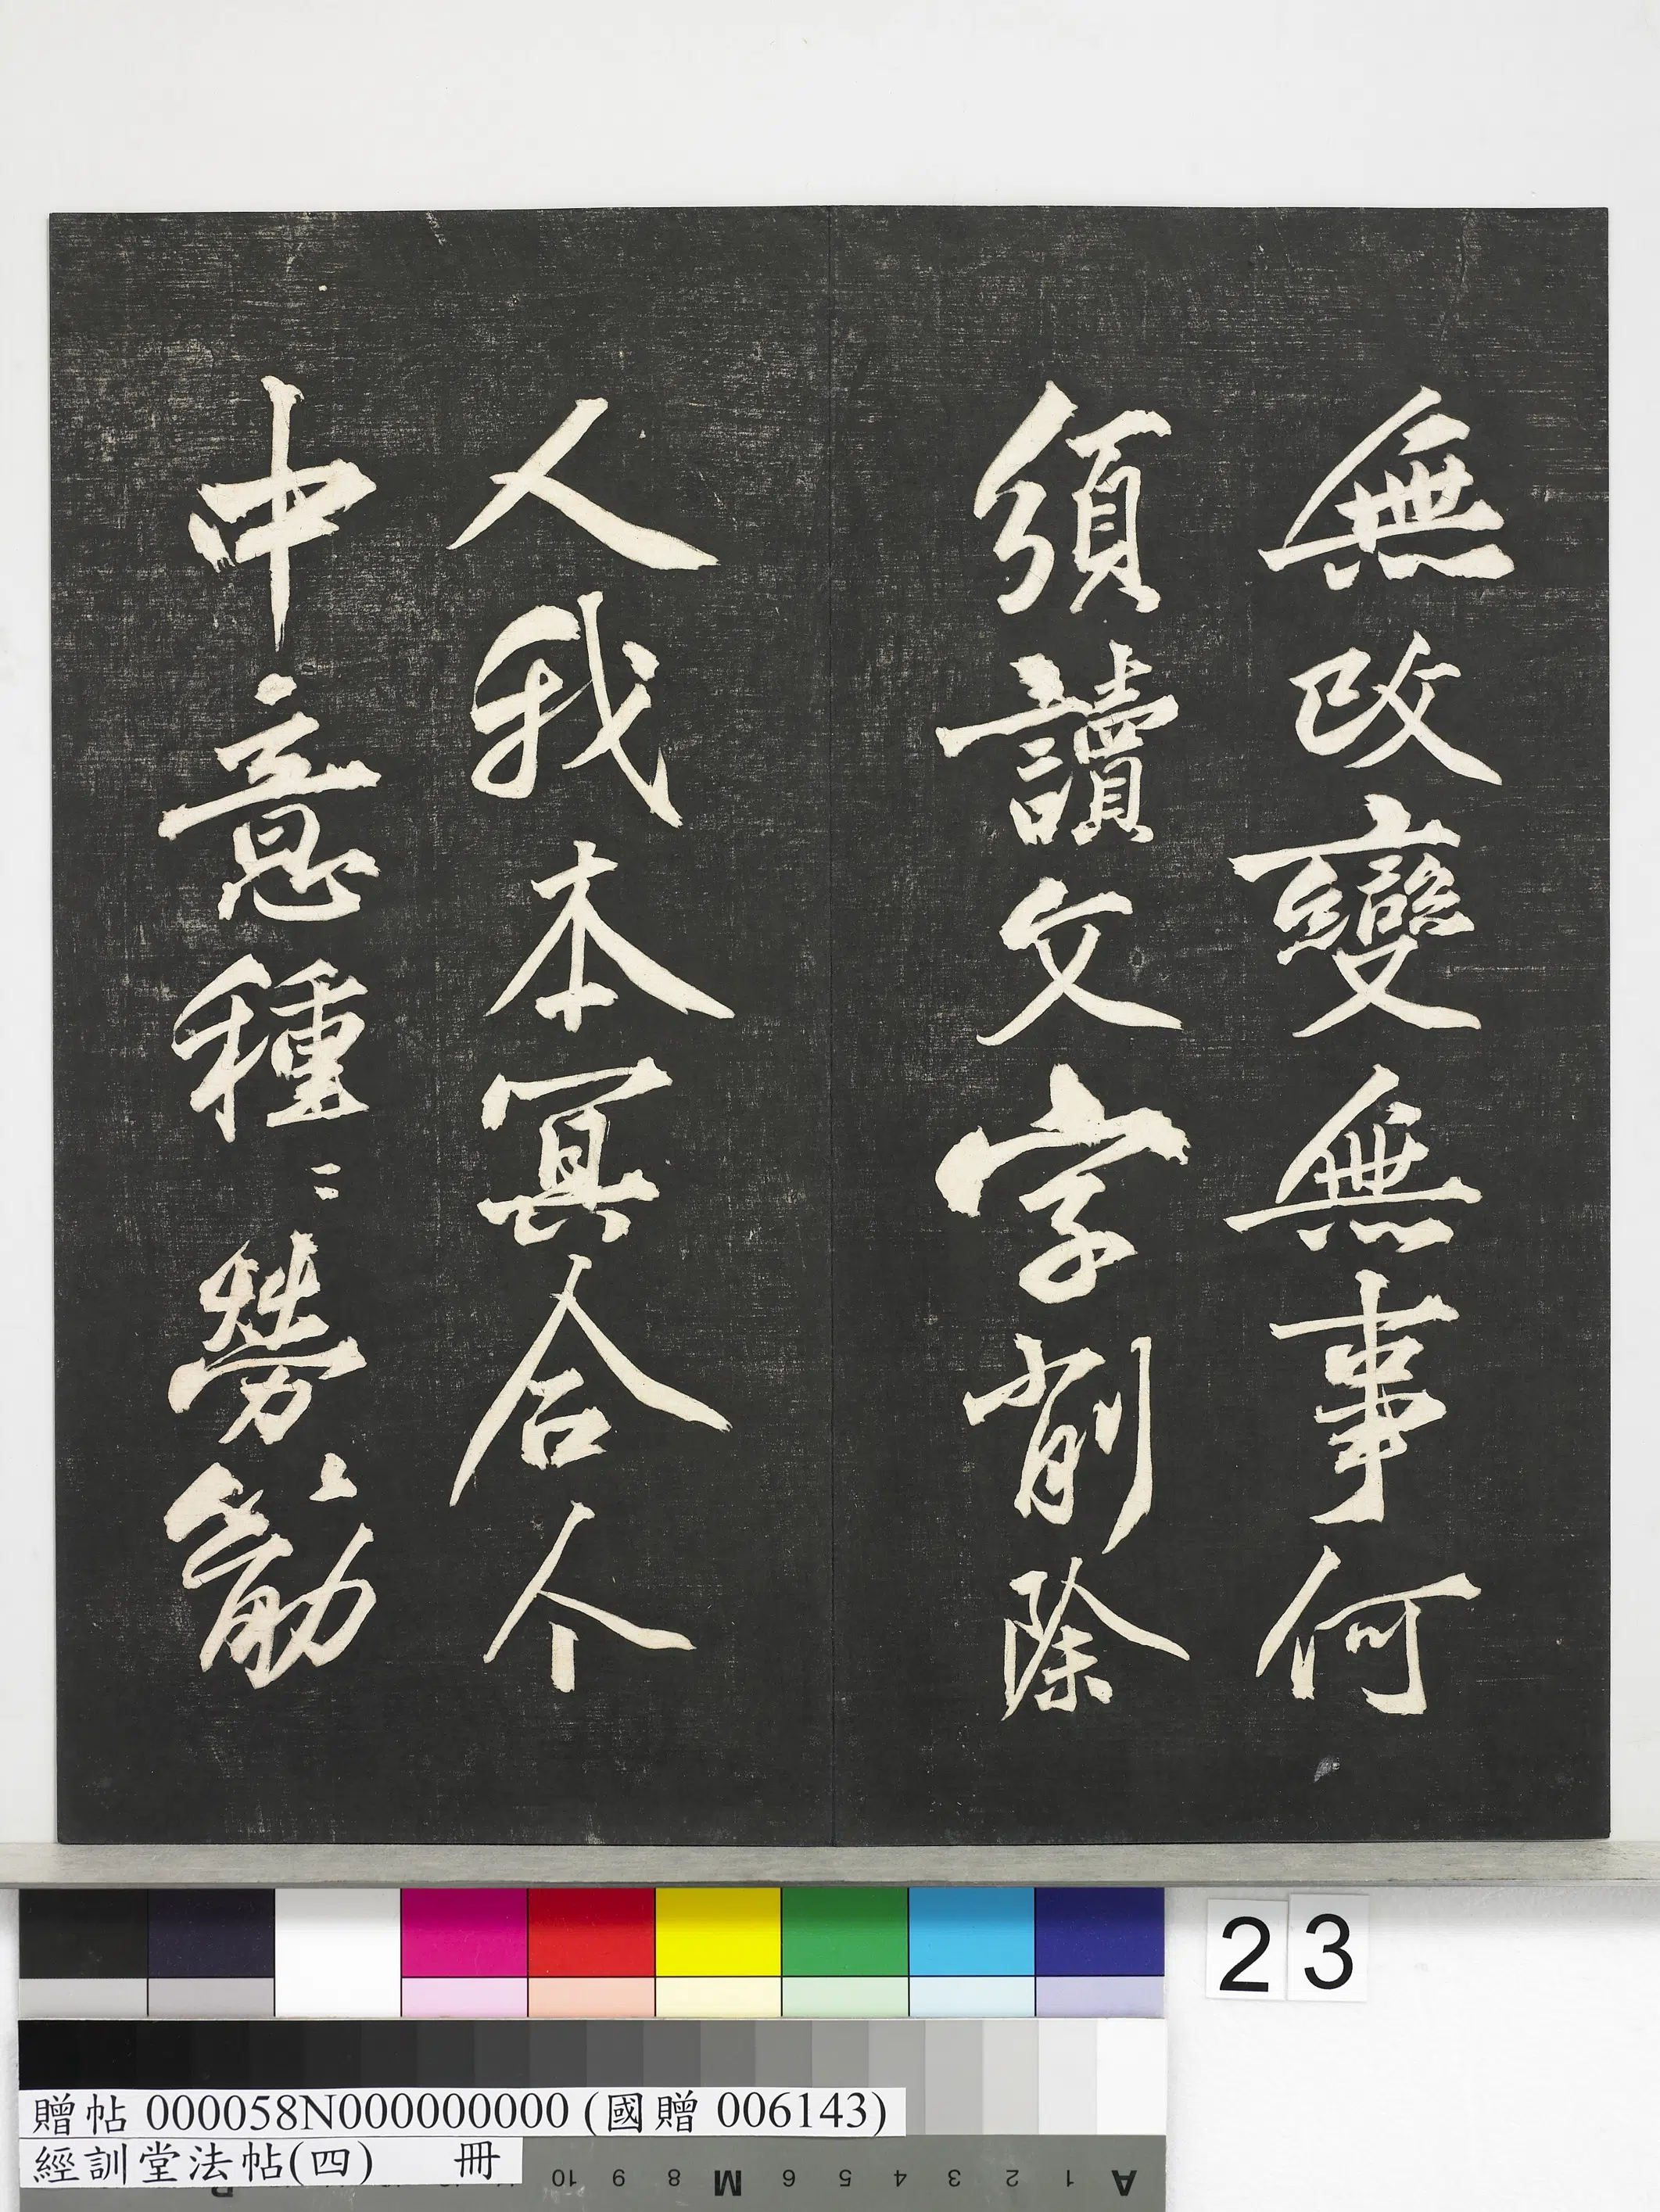 無改變無事何
須讀文字削除
人我本冥合个
中意種〻勞〻筋
23
贈帖 000058N000000000 (國贈 006143)
經訓堂法帖(四) 冊
A 1 2 3 4 5 6 M 8 9 10